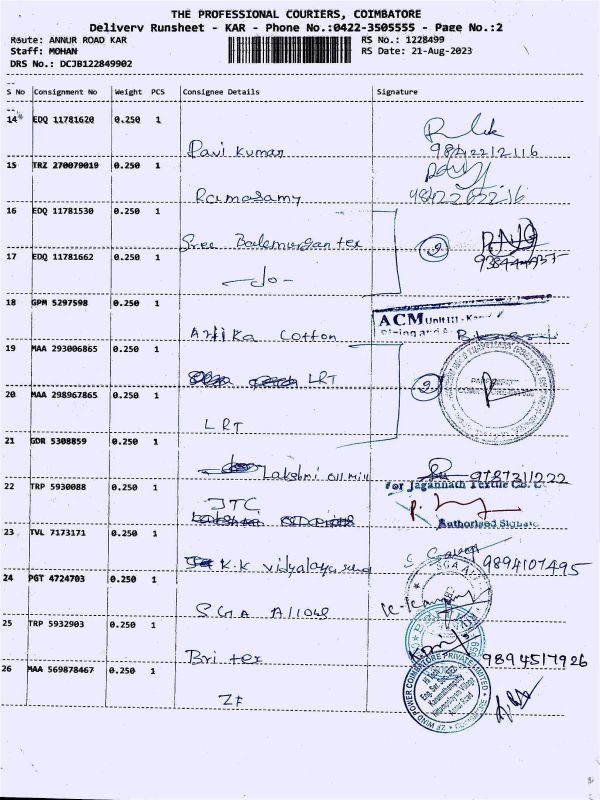 THE PROFESSIONAL COURIERS, COIMBATORE
Delivery Runsheet - KAR - Phone No.:0422-3505555 - Page No.:2
Route: ANNUR ROAD KAR
RS No.: 1228499
Staff: MOHAN
RS Date: 21-Aug-2023
DRS No.: DCJB122849902
S No Consignment No Weight PCS Consignee Details Signature
14 EDQ 11781620 0.250 1
Ravi Kumar
9842212116
15 TRZ 270079019 0.250 1
Ramasamy
16 EDQ 11781530 0.250 1
Sree Balamurgan tex
2
17 EDQ 11781662 0.250 1
-do-
18 GPM 5297598 0.250 1
ACM Unit III - 
Artika Cotton
19 MAA 293006865 0.250 1
LRT
2
20 MAA 298967865 0.250 1
LRT
21 GDR 5308859 0.250 1
Lakshmi Oil Mill
9787311222
22 TRP 5930088 0.250 1
For Jagannath Textile Co.
JTC
Authorised
23 TVL 7173171 0.250 1
K.K Vidyalaya
9894107495
24 PGT 4724703 0.250 1
SGA Alloys
25 TRP 5932903 0.250 1
Bri tex
9894517926
26 MAA 569878467 0.250 1
ZF
ZF WIND POWER COIMBATORE PRIVATE LIMITED